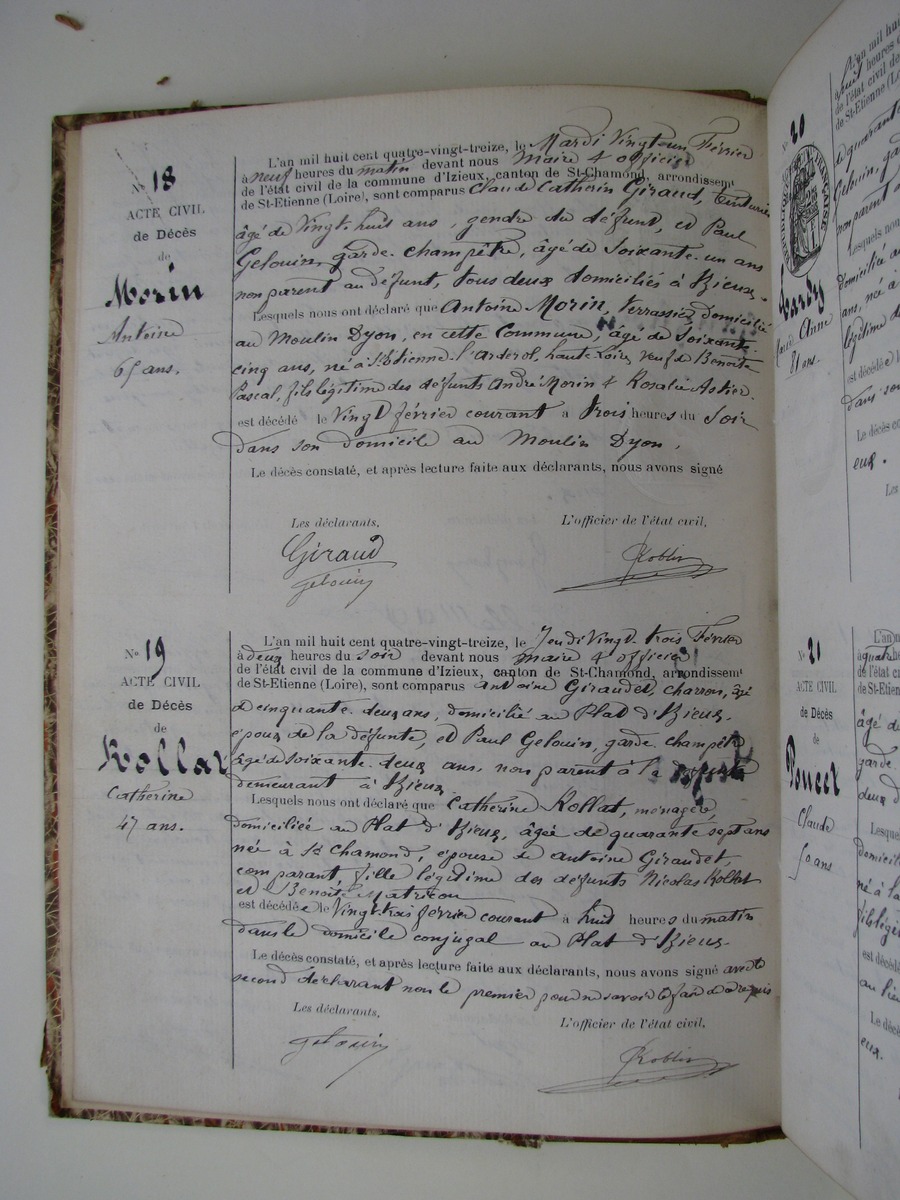 N° 18
ACTE CIVIL
de Décès
de
Morin
Antoine
65 ans.
L'an mil huit cent quatre-vingt-treize, le Mardi Vingt un Février
à neuf heures du matin devant nous Maire & officier
de l'état civil de la commune d'Izieux, canton de St-Chamond, arrondissemt
de St-Etienne (Loire), sont comparus Claude Cathrin Giraud, teinturier
âgé de Vingt-huit ans, gendre du défunt, et Paul
Gelouin, garde-champêtre, âgé de Soixante-un ans
non parent au défunt, tous deux domiciliés à Izieux.
Lesquels nous ont déclaré que Antoine Morin, terrassier, domicilié
au Moulin Dyon, en cette Commune, âgé de Soixante-
cinq ans, né à St Etienne-l'Arderol, haute Loire, veuf de Benoîte
Pascal, fils légitime des défunts André Morin & Rosalie Astier.
est décédé le Vingt février courant à trois heures du Soir
dans son domicile au Moulin Dyon.
Le décès constaté, et après lecture faite aux déclarants, nous avons signé
Les déclarants,
L'officier de l'état civil,
Giraud
Gelouin
Koblin
N° 19
ACTE CIVIL
de Décès
de
Kollat
Catherine
47 ans.
L'an mil huit cent quatre-vingt-treize, le Jeudi Vingt-trois Février
à deux heures du soir devant nous Maire & officier
de l'état civil de la commune d'Izieux, canton de St-Chamond, arrondissemt
de St-Etienne (Loire), sont comparus Antoine Giraudet, charron, âgé
de cinquante-deux ans, domicilié au Plat d'Izieux,
époux de la défunte, et Paul Gelouin, garde-champêtre
âgé de Soixante-deux ans, non parent à la défunte
demeurant à Izieux
Lesquels nous ont déclaré que Catherine Kollat, ménagère,
domiciliée au Plat d'Izieux, âgée de quarante sept ans
née à St Chamond, épouse de Antoine Giraudet,
comparant, fille légitime des défunts Nicolas Kollat
et Benoîte Matricon
est décédée le Vingt-trois février courant à huit heures du matin
dans le domicile conjugal au Plat d'Izieux.
Le décès constaté, et après lecture faite aux déclarants, nous avons signé avec le
second déclarant non le premier pour ne savoir le faire de ce requis
Les déclarants,
L'officier de l'état civil,
Gelouin
Koblin
N° 20
Anne
81 ans.
L'an mil hui
heures
de l'état civil de
de St-Etienne (Loi
de quarante
Gelouin, ga
non parent a
Lesquels nous
domiciliée au
ans, née à
légitime d
est décédée le
dans son
Le décès co
eux.
Les
N° 21
ACTE CIVIL
de Décès
de
Poncet
Claude
50 ans
L'an
à quatre
de l'état
de St-Etien
âgé d
garde-
deux d
Lesque
domicili
né à la
fils légi
est décédé
au lie
Le décè
eux.